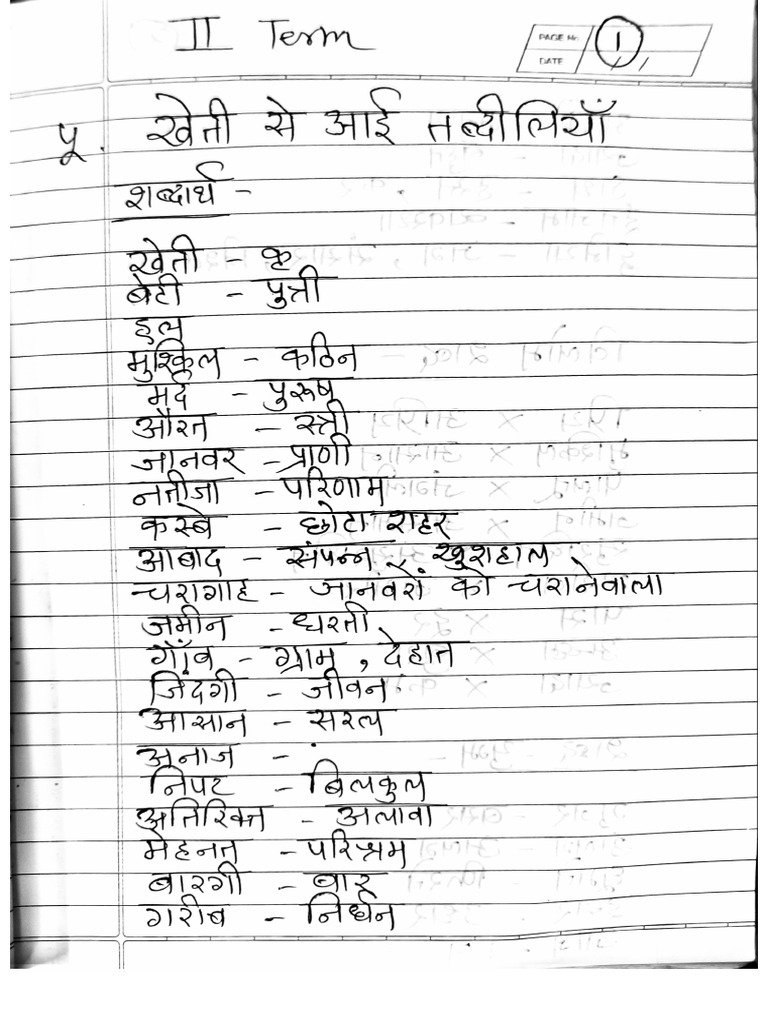 II Term
PAGE No. 1
DATE / /
पू. खेती से आई तब्दीलियाँ
शब्दार्थ -
खेती - कृ
बेटी - पुत्री
हल
मुश्किल - कठिन
मर्द - पुरुष
औरत - स्त्री
जानवर - प्राणी
नतीजा - परिणाम
कस्बे - छोटा शहर
आबाद - संपन्न, खुशहाल
चरागाह - जानवरों को चरानेवाला
जमीन - धरती
गाँव - ग्राम, देहात
जिंदगी - जीवन
आसान - सरल
अनाज -
निपट - बिलकुल
अतिरिक्त - अलावा
मेहनत - परिश्रम
बारगी - बार
गरीब - निर्धन